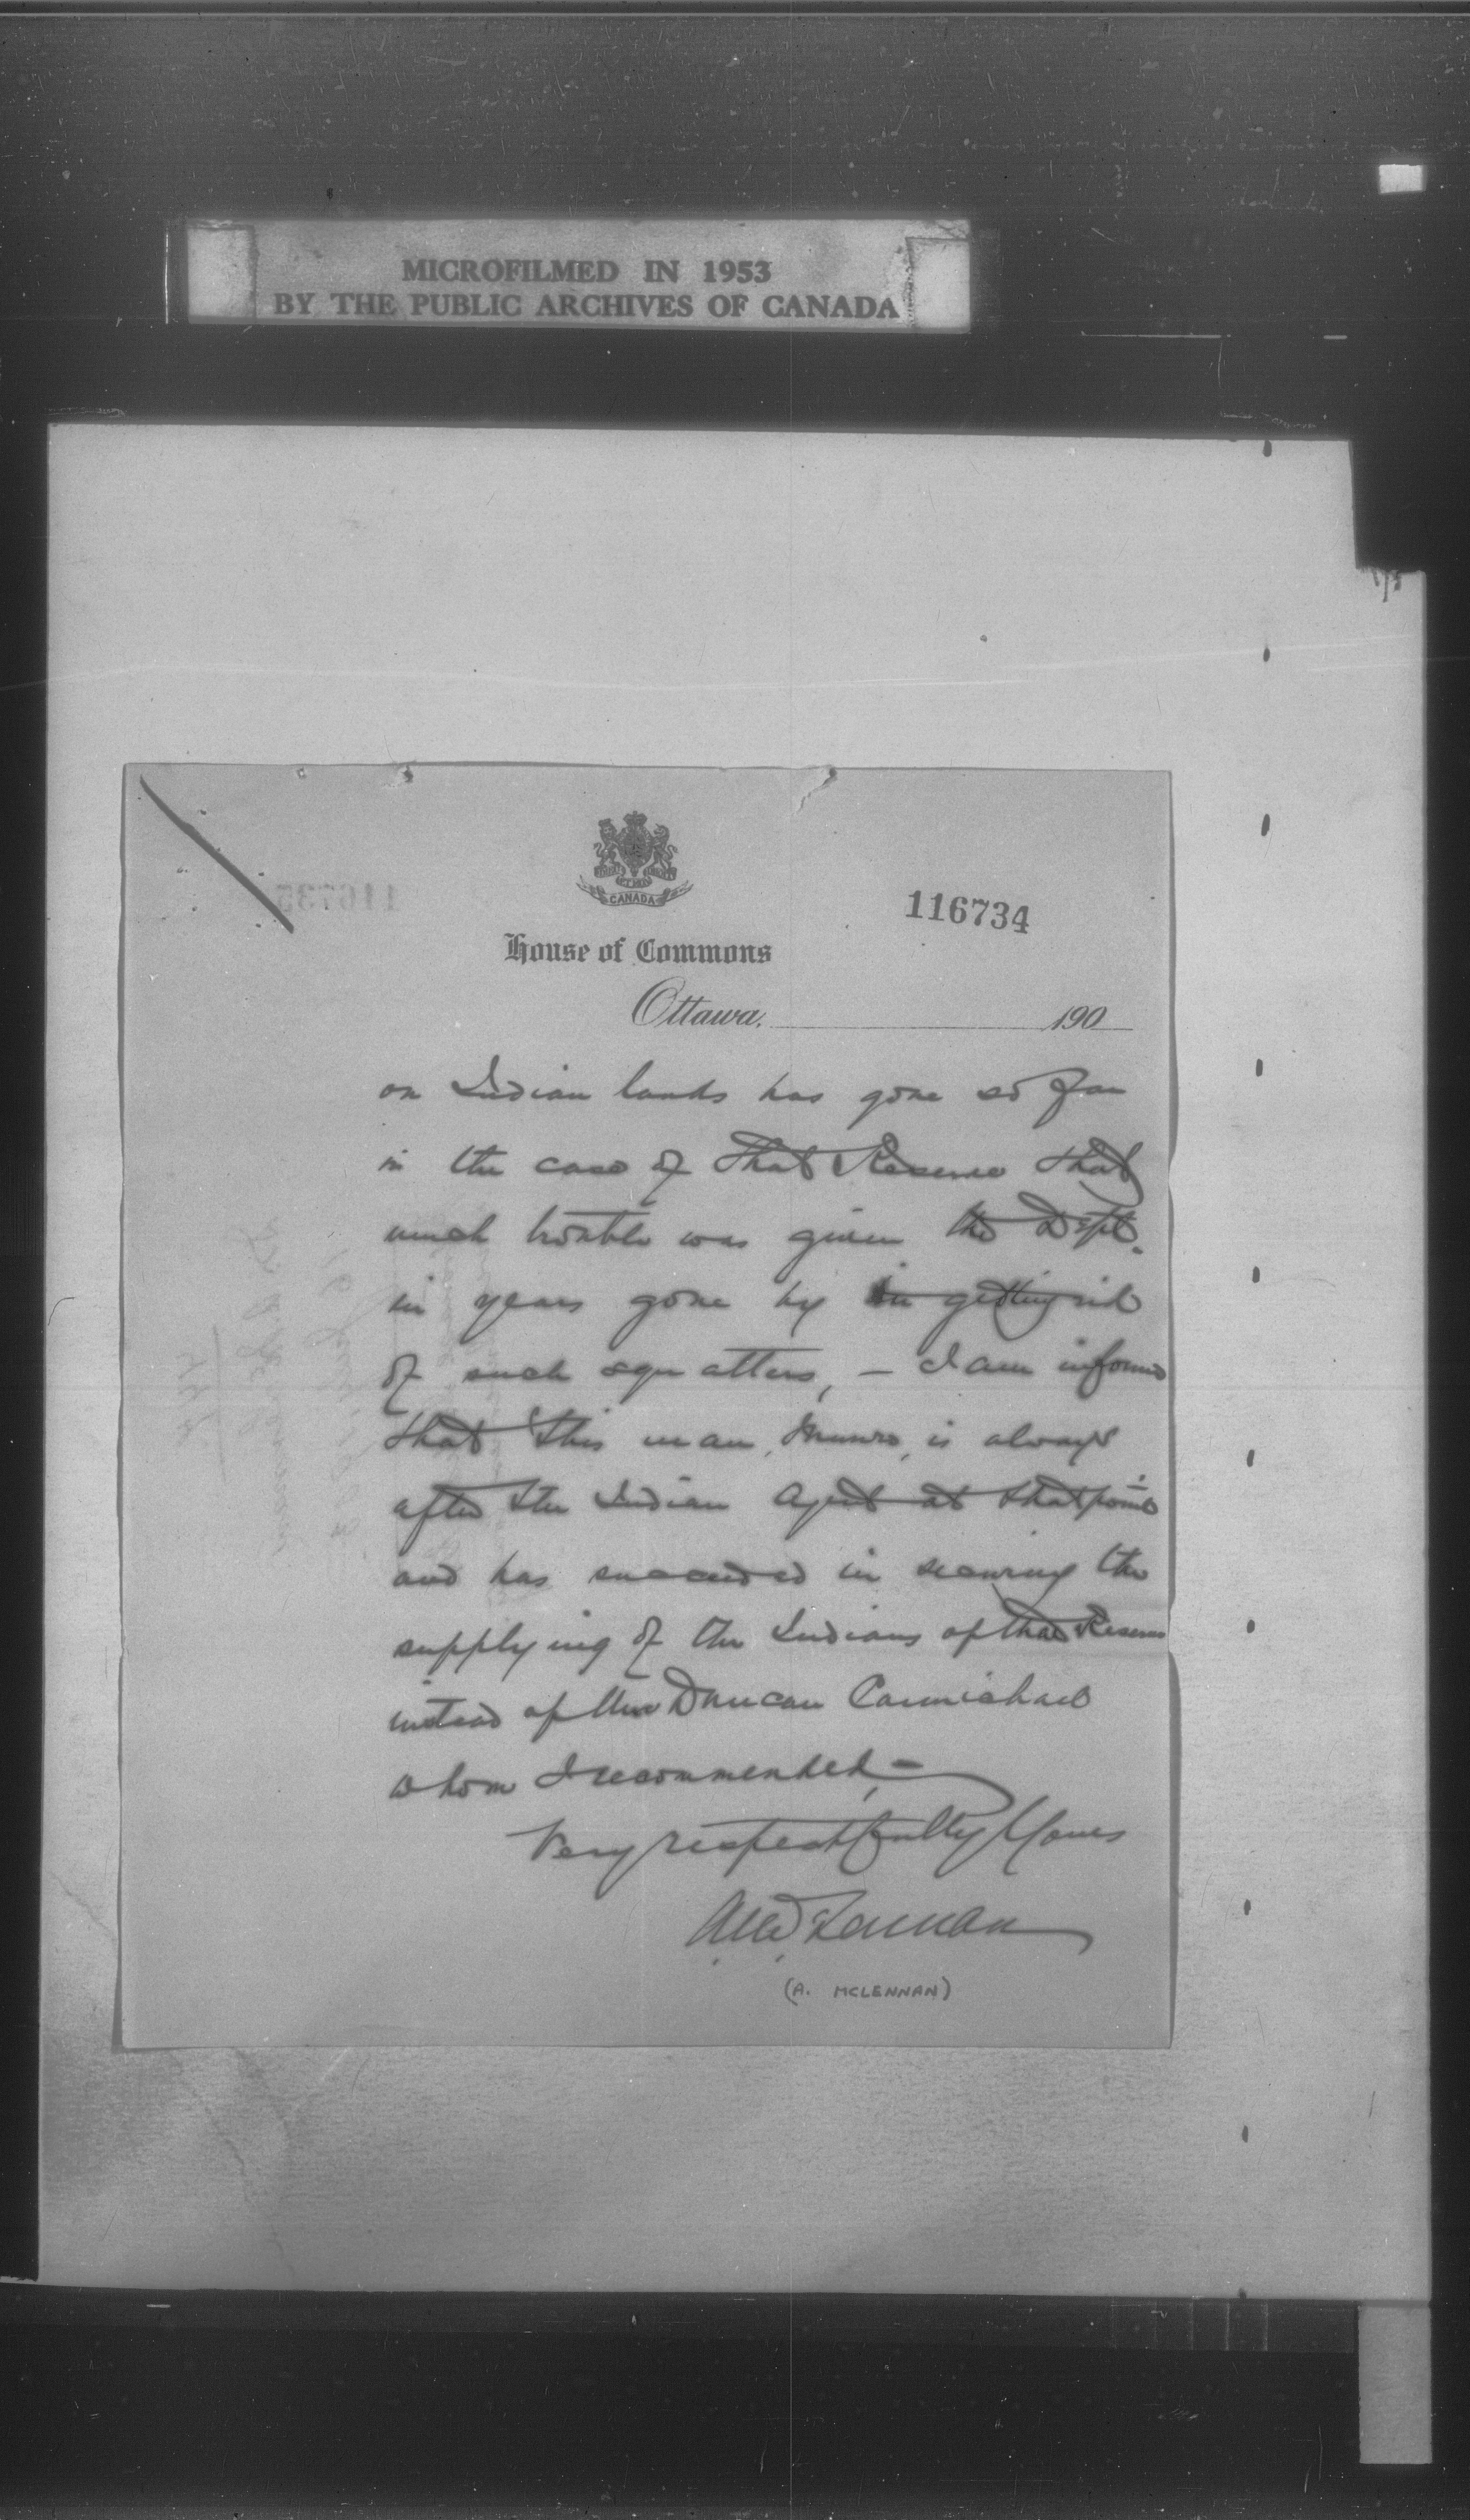 MICROFILMED IN 1953
BY THE PUBLIC ARCHIVES OF CANADA
CANADA
116734
House of Commons
Ottawa, 190
on Indian lands has gone so far
in the case of that Reserve that
much trouble was given the Dept.
in years gone by in getting rid
of such squatters, — I am informed
that this man, Munro, is always
after the Indian Agent at that point
and has succeeded in securing the
supplying of the Indians of that Reserve
instead of Mr Duncan Carmichael
whom I recommended, —
Very respectfully Yours
A McLennan
(A. MCLENNAN)